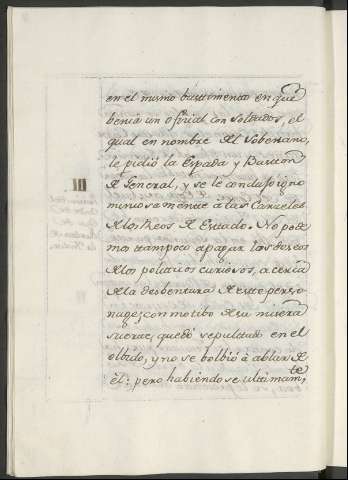 en el mismo bastimento en que
benia un ofizial con Soldados, el
qual en nombre del Soberano,
le pidio la Espada y Baston
de General, y se le condujo igno
miniosamente a las Carceles
de los Reos de Estado. No pode
mos tampoco apagar los deseos
de los politicos curiosos, acerca
de la desbentura de este perso
nage; con motibo de su misera
suerte, quedó sepultado en el
olbido, y no se bolbió a ablar de
el: pero habiendose ultimam.te